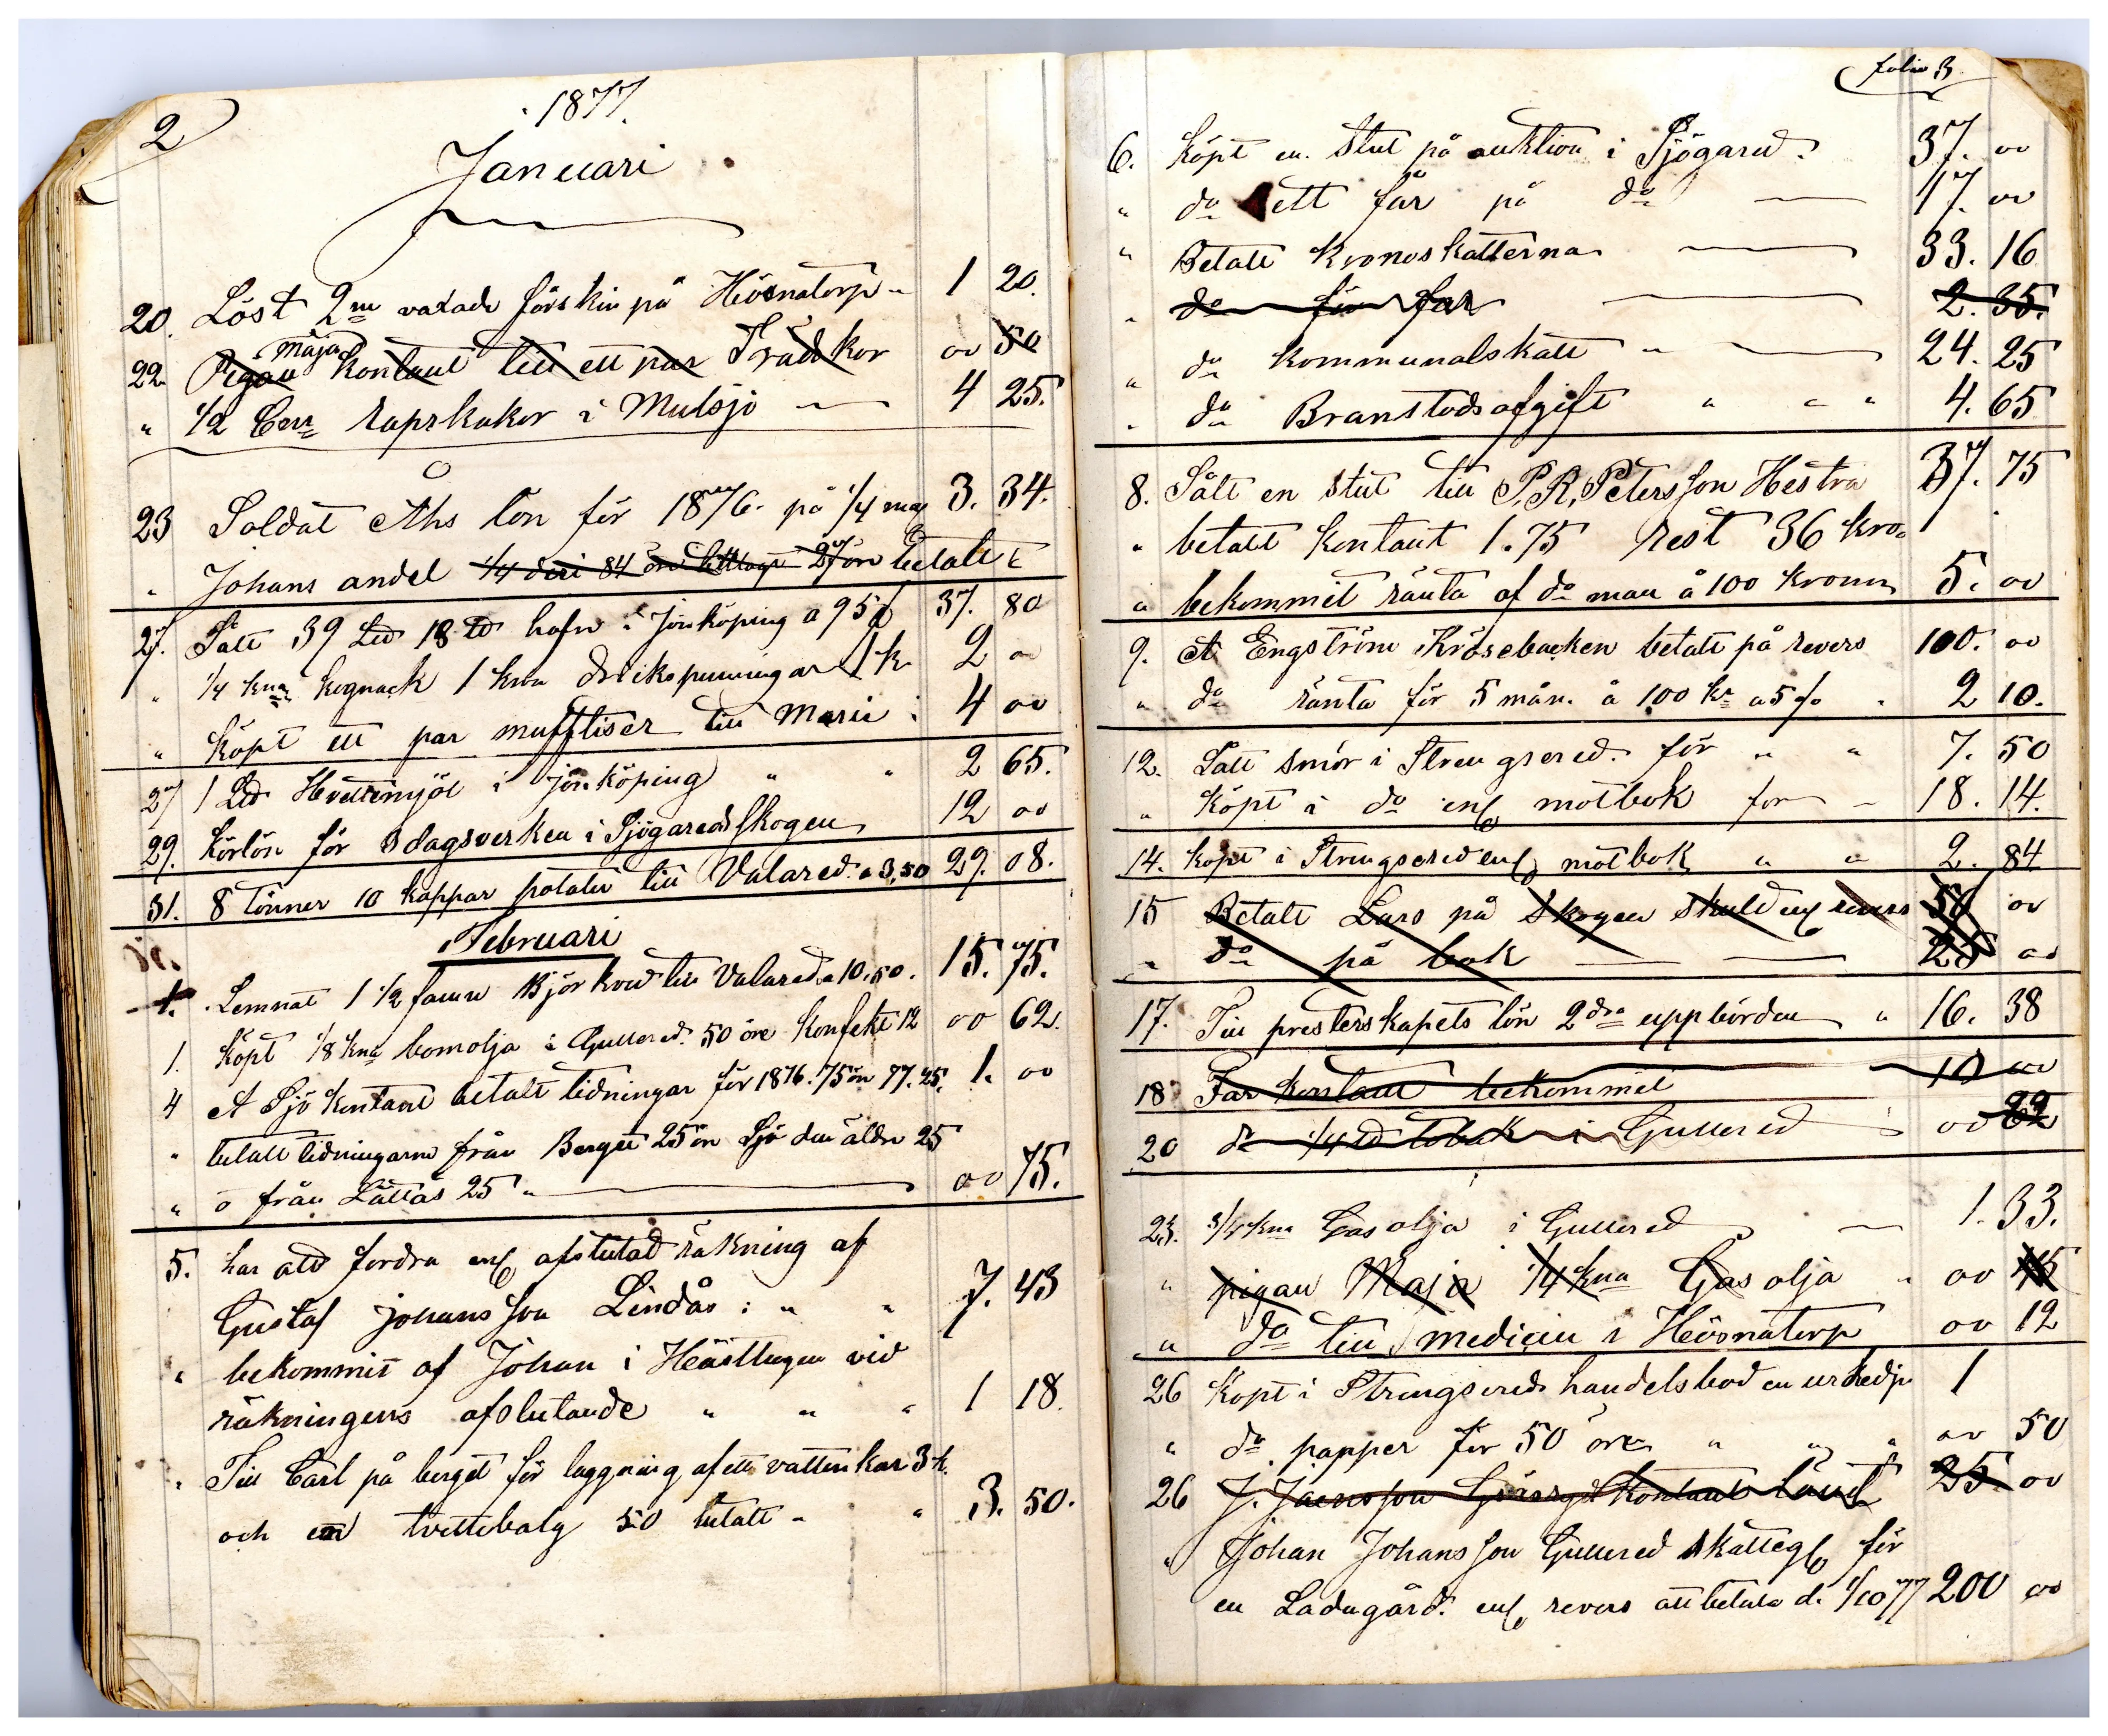 2
1877.
Januari
20. Löst 2ne vaxade fårskin på Hösnatorp " 1 20.
Maja
22. Pigan kontant till ett par Trädskor oo 50
" 1/2 Cenr rapskakor i Mulsjö — 4 25.
23 Soldat Ahs lön för 1876. på 1/4 3. 34.
" Johans andel 1/4 deri 84 öre 27 öre betalt
27. Sålt 39 Ltd 18 td hafre i Jönköping a 95 37. 80
" 1/4 kna kognack 1 kna drikspenningar 1 k 2 "
" köpt ett par mufftiser till Marii : 4 oo
27 1 Ltd Hvettemjöl i jönköping " " 2 65.
29. Körlön för 8 dagsverken i Sjögaredsskogen 12 oo
31. 8 tönner 10 kappar potater till Valared. a 3,50 29. 08.
Februari
1. Lemnat 1 1/2 famn Björkved till Valared a 10,50. 15. 75.
1. Köpt 1/8 kna bomolja i Gullered. 50 öre konfekt 12 oo 62.
4 A Sjö kontant betalt tidningar för 1876. 75 öre 77. 25. 1. oo
" betalt tidningarne från Berget 25 öre Sjö den äldre 25
" ö från Lättås 25 " — oo 75.
5. har att fordra enl afslutad räkning af
Gustaf johansson Lindås : " " 7. 43
" bekommit af Johan i Hästhagen vid
räkningens afslutande " " " 1 18.
" Till Carl på berget för laggning af ett vattenkar 3 k.
och en tvettebalg 50 betalt " " 3. 50.
folio 3
6. Köpt en stut på auktion i Sjögared. 37. oo
" do ett får på do — 17. oo
" Betalt kronoskatterna — 33. 16
" do för far — 2. 35.
" do kommunalskatt " — 24. 25
" do Branstodsafgift " " " 4. 65
8. Sålt en stut till P.R. Petersson Hestra 37. 75
" betalt kontant 1.75 rest 36 kro.
" bekommit ränta af do man å 100 kronor 5. oo
9. A Engström Krösebacken betalt på revers 100. oo
" do ränta för 5 mån. å 100 kr a 5 % . 2 10.
12. Sålt smör i Strengsered. för " " 7. 50
" köpt i do enl motbok for — 18. 14.
14. köpt i Strengsered enl motbok " " 2. 84
15 Betalt Lars på Skogen skuld enl revers 50 oo
" do på bok — — 25 oo
17. Till presterskapets lön 2dra uppbörden " 16. 38
18 Far kontant bekommit 10 oo
20 do 1/4 td tobak i Gullered oo 22
23. 3/4 kna Gasolja i Gullered — 1. 33.
" pigan Maja 1/4 kna Gasolja " oo 45
" do till medicin i Hösnatorp oo 12
26 Köpt i Strengsered handelsbod en urkedja 1
" do papper för 50 öre " " " oo 50
26 J. Jaensson kontant lånt 25. oo
" Johan Johansson Gullered skatteg för
en Ladugård. enl revers att betala d. 1/10 77 200 oo